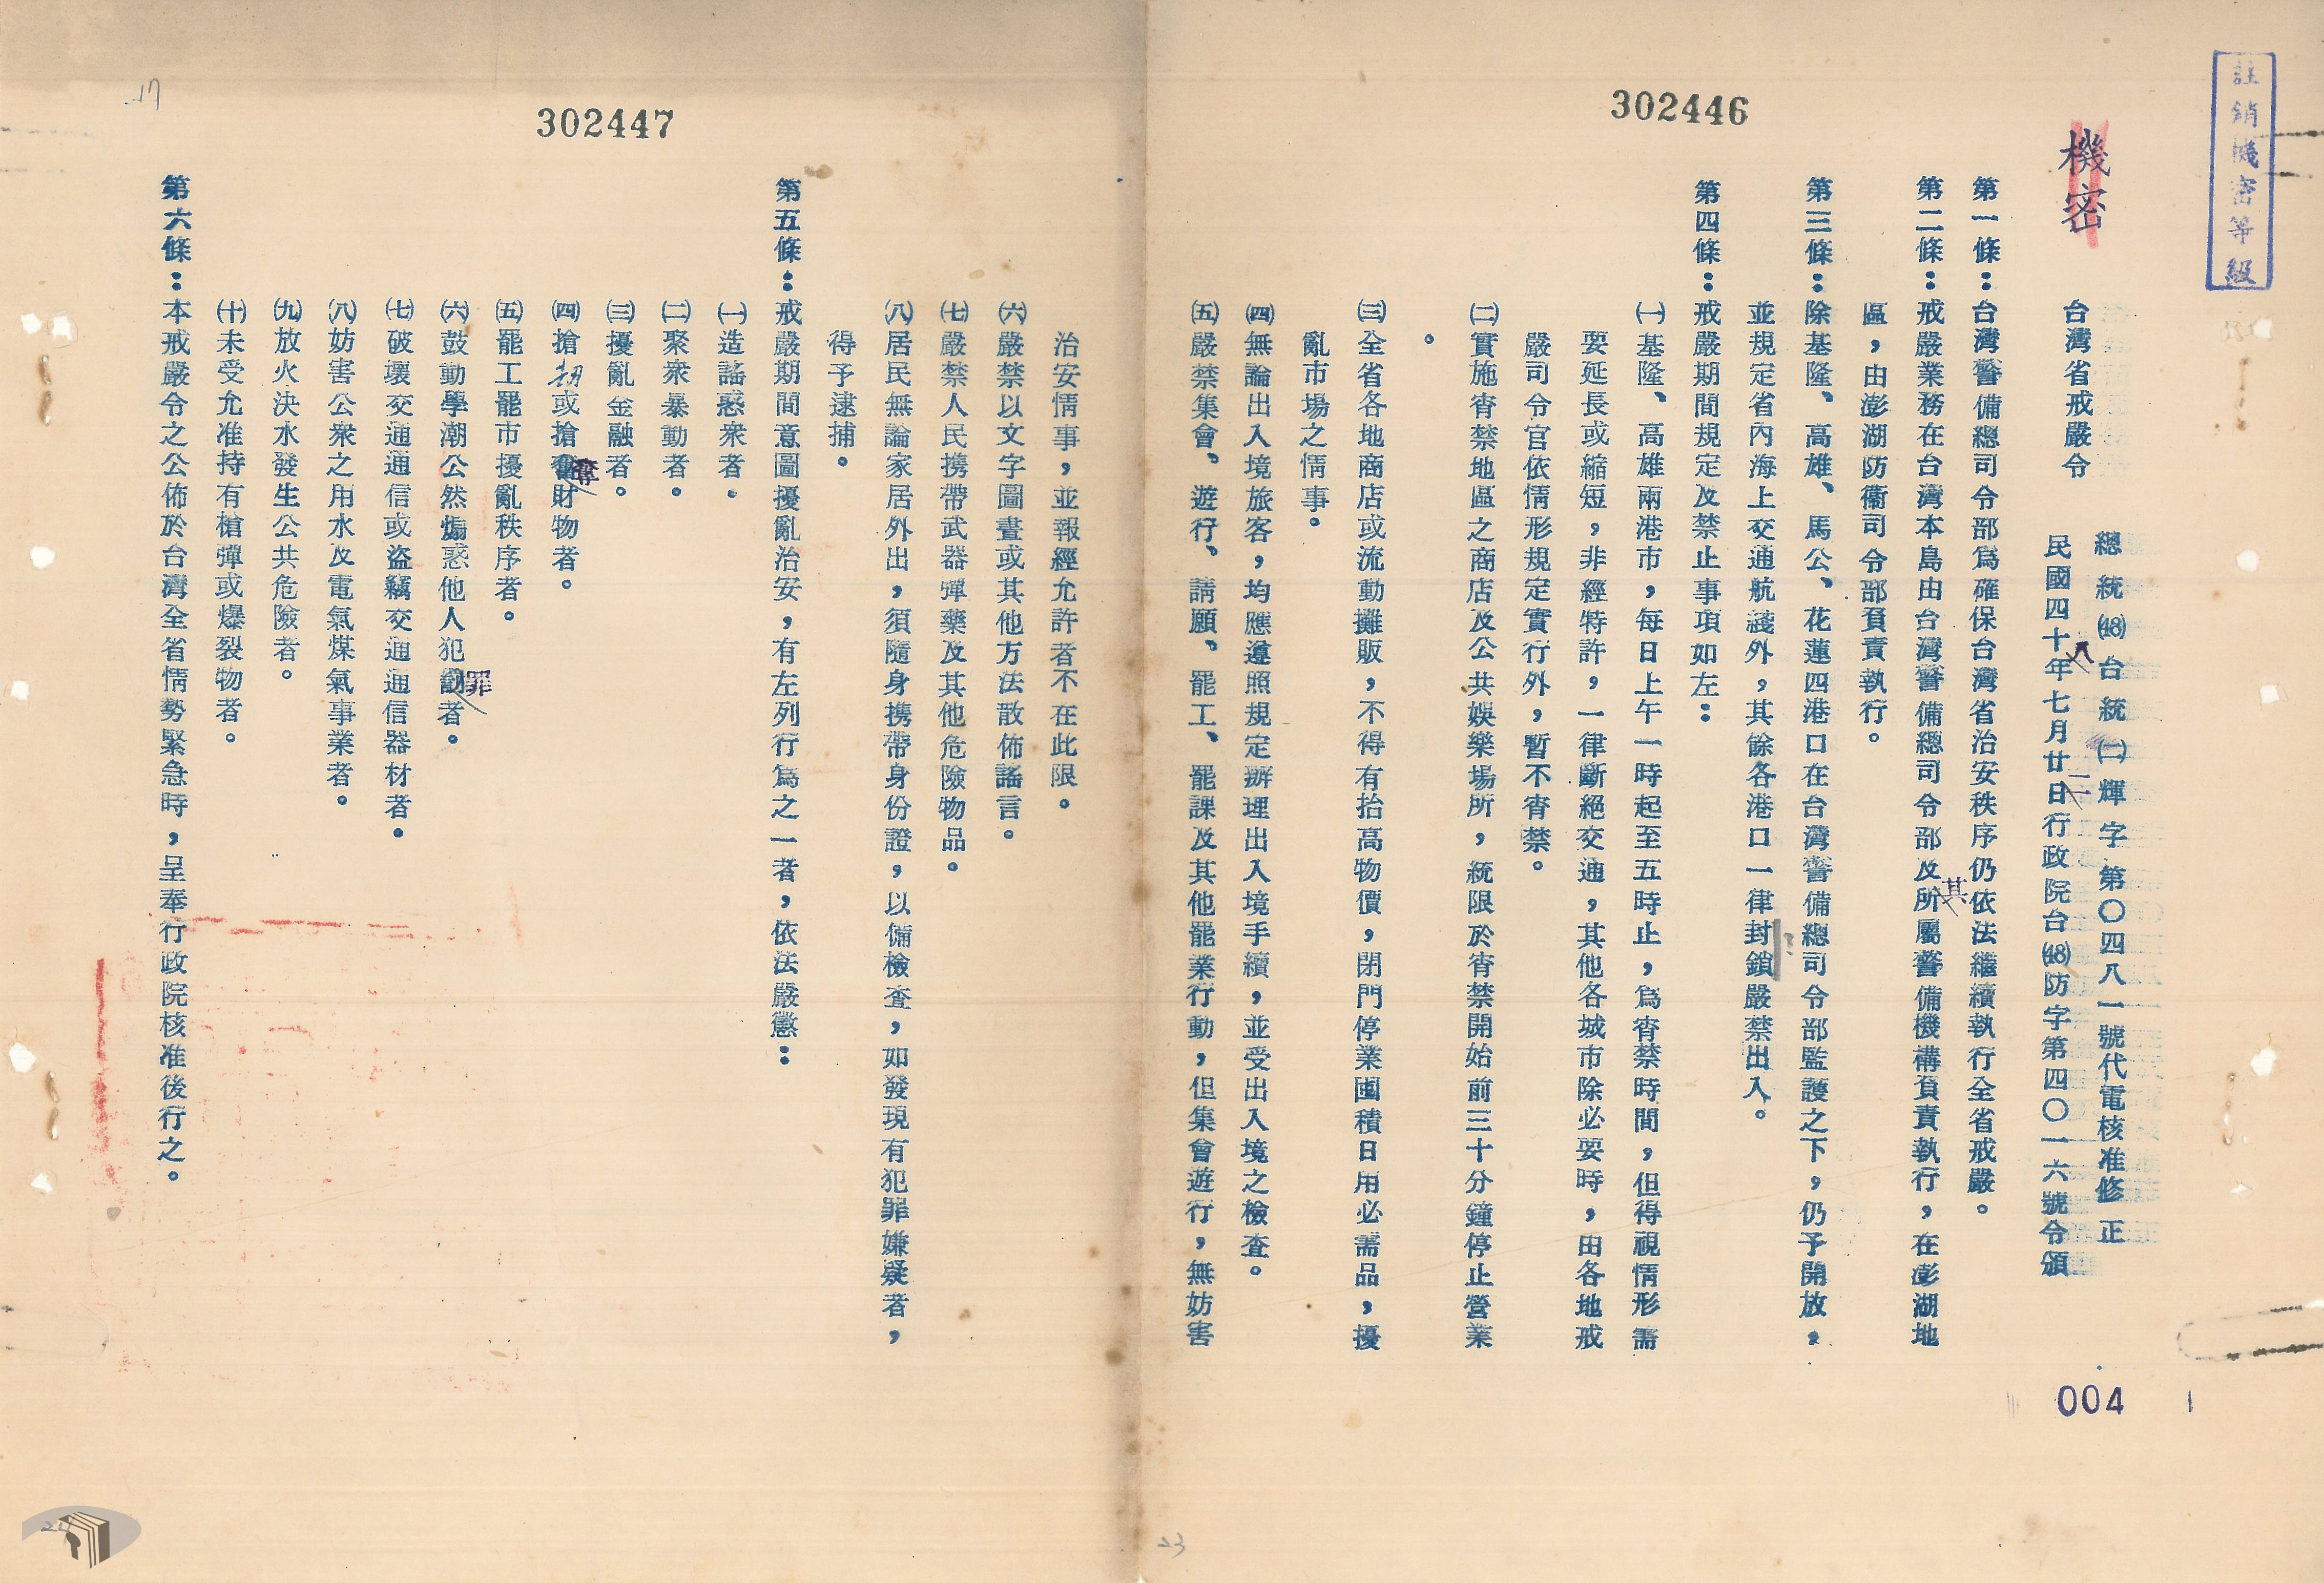 註銷機密等級
機密
302446
台灣省戒嚴令
總統㊽台統㈡輝字第〇四八一號代電核准修正
民國四十八年七月廿二日行政院台㊽防字第四〇一六號令頒
第一條：台灣警備總司令部為確保台灣省治安秩序仍依法繼續執行全省戒嚴。
第二條：戒嚴業務在台灣本島由台灣警備總司令部及其所屬警備機構負責執行，在澎湖地
區，由澎湖防衞司令部負責執行。
第三條：除基隆、高雄、馬公、花蓮四港口在台灣警備總司令部監護之下，仍予開放，
並規定省內海上交通航綫外，其餘各港口一律封鎖嚴禁出入。
第四條：戒嚴期間規定及禁止事項如左：
㈠基隆、高雄兩港市，每日上午一時起至五時止，為宵禁時間，但得視情形需
要延長或縮短，非經特許，一律斷絕交通，其他各城市除必要時，由各地戒
嚴司令官依情形規定實行外，暫不宵禁。
㈡實施宵禁地區之商店及公共娛樂場所，統限於宵禁開始前三十分鐘停止營業
。
㈢全省各地商店或流動攤販，不得有抬高物價，閉門停業囤積日用必需品，擾
亂市場之情事。
㈣無論出入境旅客，均應遵照規定辦理出入境手續，並受出入境之檢查。
㈤嚴禁集會、遊行、請願、罷工、罷課及其他罷業行動，但集會遊行，無妨害
004
302447
治安情事，並報經允許者不在此限。
㈥嚴禁以文字圖畫或其他方法散佈謠言。
㈦嚴禁人民携帶武器彈藥及其他危險物品。
㈧居民無論家居外出，須隨身携帶身份證，以備檢查，如發現有犯罪嫌疑者，
得予逮捕。
第五條：戒嚴期間意圖擾亂治安，有左列行為之一者，依法嚴懲：
㈠造謠惑衆者。
㈡聚衆暴動者。
㈢擾亂金融者。
㈣搶刼或搶奪財物者。
㈤罷工罷市擾亂秩序者。
㈥鼓動學潮公然煽惑他人犯罪者。
㈦破壞交通通信或盜竊交通通信器材者。
㈧妨害公衆之用水及電氣煤氣事業者。
㈨放火決水發生公共危險者。
㈩未受允准持有槍彈或爆裂物者。
第六條：本戒嚴令之公佈於台灣全省情勢緊急時，呈奉行政院核准後行之。
23